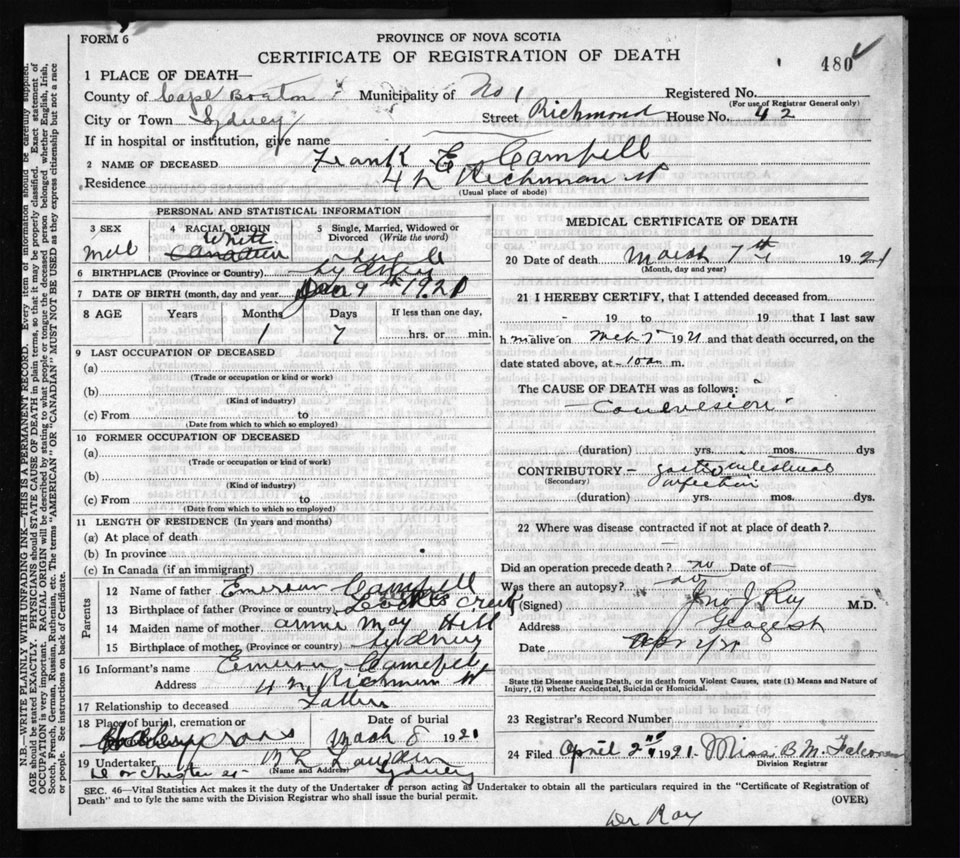 FORM 6
PROVINCE OF NOVA SCOTIA
CERTIFICATE OF REGISTRATION OF DEATH
480
1 PLACE OF DEATH—
County of Cape Breton Municipality of No 1 Registered No.
(For use of Registrar General only)
City or Town Sydney Street Richmond House No. 42
If in hospital or institution, give name
2 NAME OF DECEASED Frank E. Campell
Residence 42 Richman St
(Usual place of abode)
PERSONAL AND STATISTICAL INFORMATION
3 SEX
4 RACIAL ORIGIN
5 Single, Married, Widowed or Divorced (Write the word)
White
Canadian
6 BIRTHPLACE (Province or Country) Sydney
7 DATE OF BIRTH (month, day and year) 9th 1921
8 AGE Years Months Days If less than one day,
1 7 hrs. or min.
9 LAST OCCUPATION OF DECEASED
(a)
(Trade or occupation or kind or work)
(b)
(Kind of industry)
(c) From to
(Date from which to which so employed)
10 FORMER OCCUPATION OF DECEASED
(a)
(Trade or occupation or kind of work)
(b)
(Kind of industry)
(c) From to
(Date from which to which so employed)
11 LENGTH OF RESIDENCE (In years and months)
(a) At place of death
(b) In province
(c) In Canada (if an immigrant)
Parents
12 Name of father Emerson Campell
13 Birthplace of father (Province or country) Creek
14 Maiden name of mother Annie May Hill
15 Birthplace of mother (Province or country) Sydney
16 Informant's name Emerson Campell
Address 42 Richman St
17 Relationship to deceased Father
18 Place of burial, cremation or Date of burial
March 8 1921
19 Undertaker
(Name and Address) Sydney
Dorchester St
MEDICAL CERTIFICATE OF DEATH
20 Date of death March 7th 1921
(Month, day and year)
21 I HEREBY CERTIFY, that I attended deceased from
19 to 19 that I last saw
h m alive on Mch 5 1921 and that death occurred, on the
date stated above, at 10 a m.
The CAUSE OF DEATH was as follows:
Convulsion
(duration) yrs. mos. dys
CONTRIBUTORY – gastro intestinal
(Secondary) infection
(duration) yrs. mos. dys.
22 Where was disease contracted if not at place of death?
Did an operation precede death? no Date of
Was there an autopsy? no
(Signed) Jno J. Roy M.D.
Address George St
Date
State the Disease causing Death, or in death from Violent Causes, state (1) Means and Nature of
Injury, (2) whether Accidental, Suicidal or Homicidal.
23 Registrar's Record Number
24 Filed April 2nd 1921. Miss B. M. Falconer
Division Registrar
SEC. 46—Vital Statistics Act makes it the duty of the Undertaker or person acting as Undertaker to obtain all the particulars required in the "Certificate of Registration of
Death" and to fyle the same with the Division Registrar who shall issue the burial permit.
(OVER)
Dr Roy
N.B.—WRITE PLAINLY WITH UNFADING INK—THIS IS A PERMANENT RECORD. Every item of information should be carefully supplied.
AGE should be stated EXACTLY. PHYSICIANS should STATE CAUSE OF DEATH in plain terms, so that it may be properly classified. Exact statement of
OCCUPATION is very important. RACIAL ORIGIN will be described by stating to what people or tongue the deceased person belonged whether English, Irish,
Scotch, French, German, Russian, Ruthenian, etc. The terms "AMERICAN" OR "CANADIAN" MUST NOT BE USED as they express citizenship but not a race
or people. See instructions on back of Certificate.